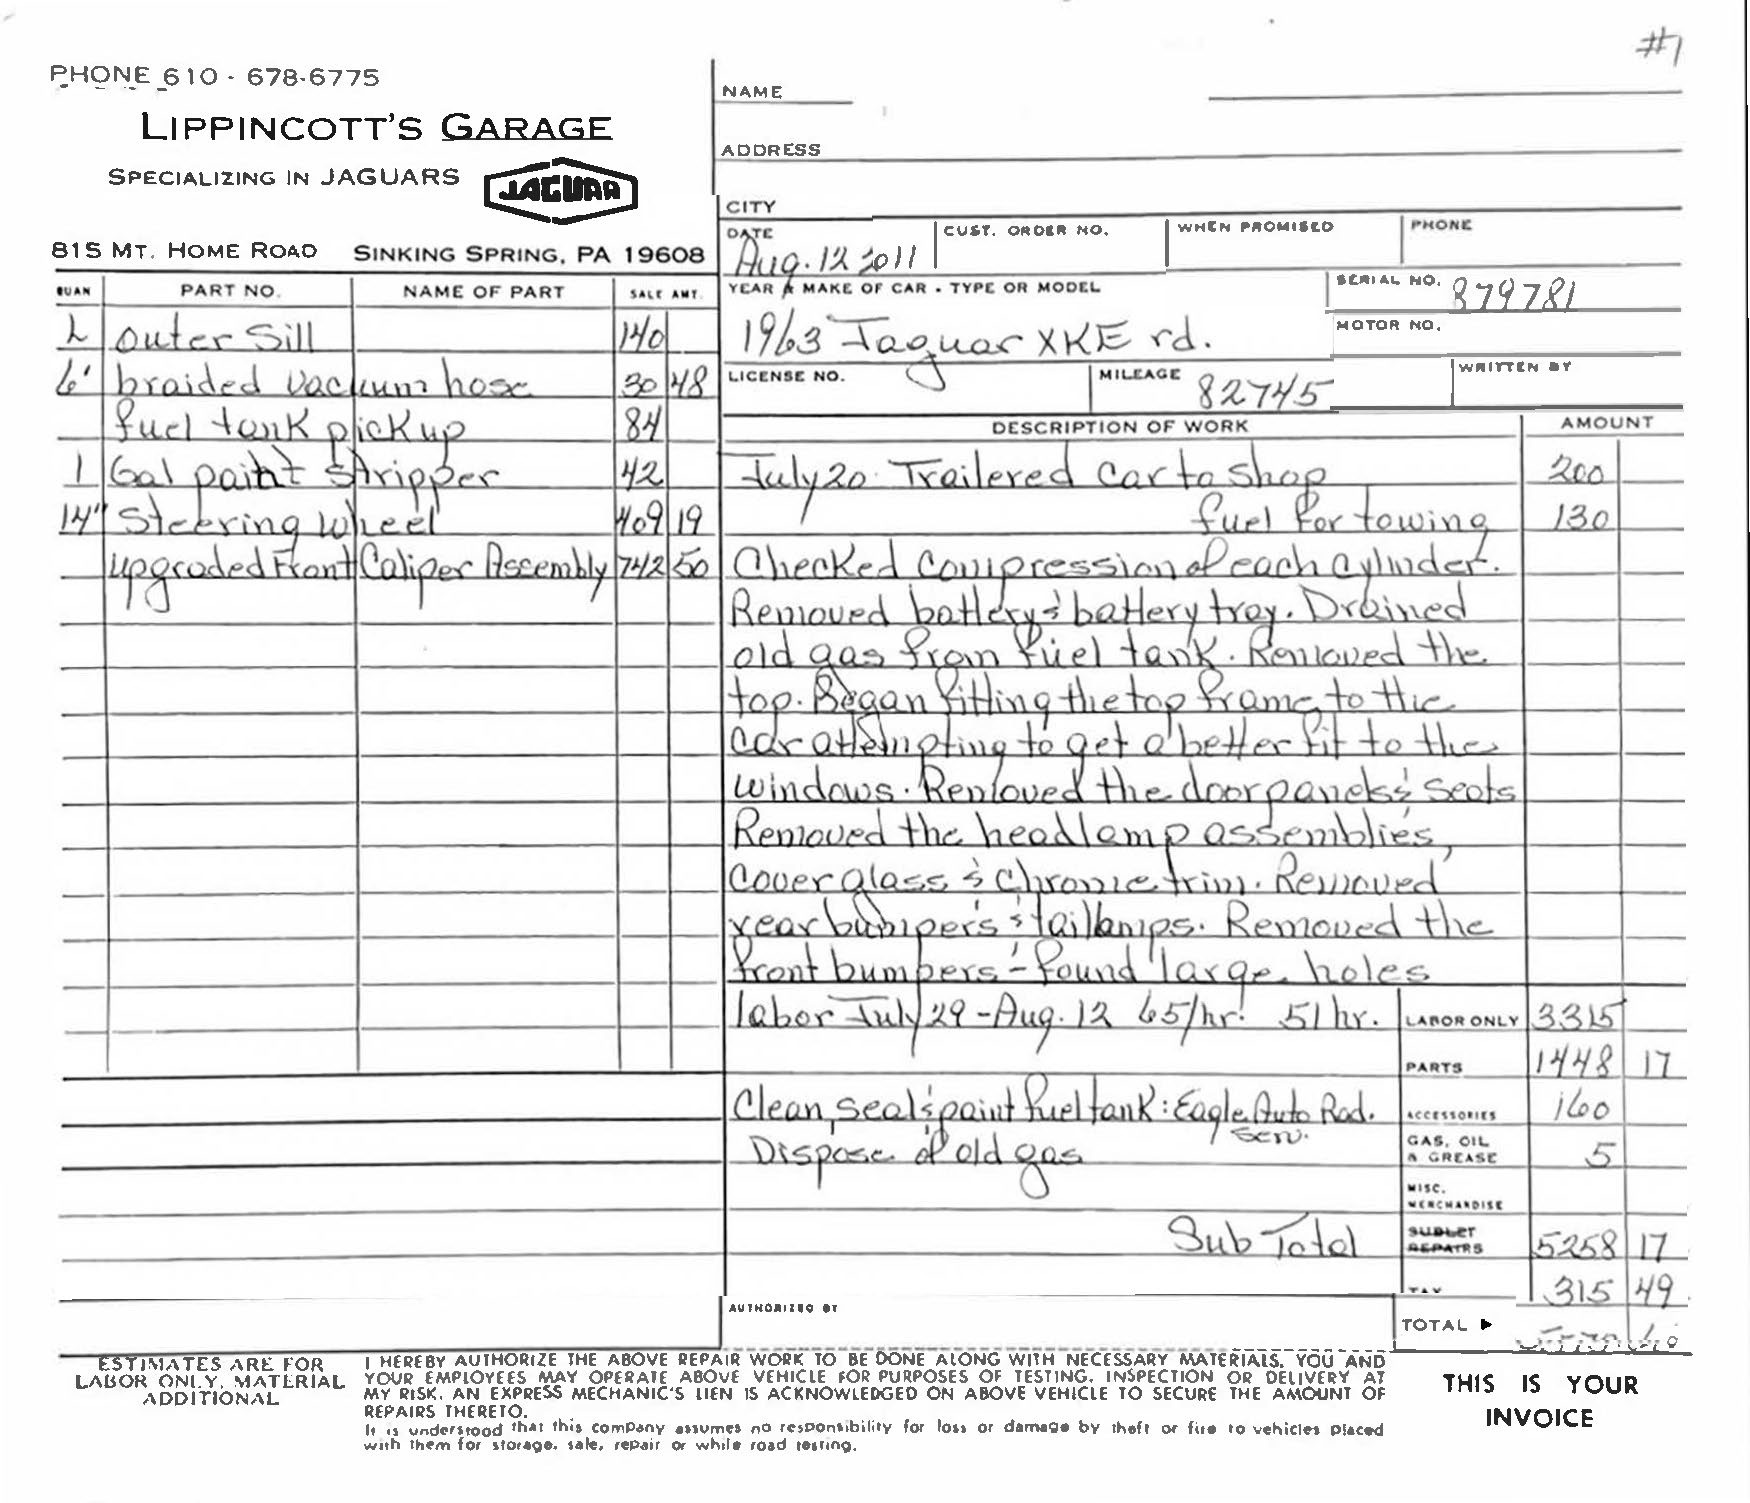 #1
PHONE 610 - 678-6775
LIPPINCOTT'S GARAGE
SPECIALIZING IN JAGUARS
JAGUAR
815 MT. HOME ROAD SINKING SPRING, PA 19608
NAME
ADDRESS
CITY
DATE CUST. ORDER NO. WHEN PROMISED PHONE
Aug. 12 2011
YEAR & MAKE OF CAR - TYPE OR MODEL SERIAL NO. 879781
1963 Jaguar XKE rd. MOTOR NO.
LICENSE NO. MILEAGE 82745 WRITTEN BY
QUAN PART NO. NAME OF PART SALE AMT.
2 outer sill 140
6' braided vacuum hose 30 48
fuel tank pickup 84
1 Gal paint stripper 42
14" Steering wheel 409 19
upgraded Front Caliper Assembly 742 50
DESCRIPTION OF WORK AMOUNT
July 20. Trailered car to shop 200
fuel for towing 130
Checked compression of each cylinder.
Removed battery & battery tray. Drained
old gas from fuel tank. Removed the
top. Began fitting the top frame to the
car attempting to get a better fit to the
windows. Removed the door panels & seats
Removed the headlamp assemblies,
cover glass & chrome trim. Removed
rear bumpers & taillamps. Removed the
front bumpers - found large holes
labor July 29 - Aug. 12 65/hr. 51 hr. LABOR ONLY 3315
PARTS 1448 17
Clean, seal & paint fuel tank: Eagle Auto Rad. ACCESSORIES 160
Serv.
Dispose of old gas GAS, OIL & GREASE 5
MISC. MERCHANDISE
Sub Total SUBLET REPAIRS 5258 17
TAX 315 49
AUTHORIZED BY TOTAL ▶
ESTIMATES ARE FOR LABOR ONLY, MATERIAL ADDITIONAL
I HEREBY AUTHORIZE THE ABOVE REPAIR WORK TO BE DONE ALONG WITH NECESSARY MATERIALS. YOU AND
YOUR EMPLOYEES MAY OPERATE ABOVE VEHICLE FOR PURPOSES OF TESTING, INSPECTION OR DELIVERY AT
MY RISK. AN EXPRESS MECHANIC'S LIEN IS ACKNOWLEDGED ON ABOVE VEHICLE TO SECURE THE AMOUNT OF
REPAIRS THERETO.
It is understood that this company assumes no responsibility for loss or damage by theft or fire to vehicles placed
with them for storage, sale, repair or while road testing.
THIS IS YOUR
INVOICE